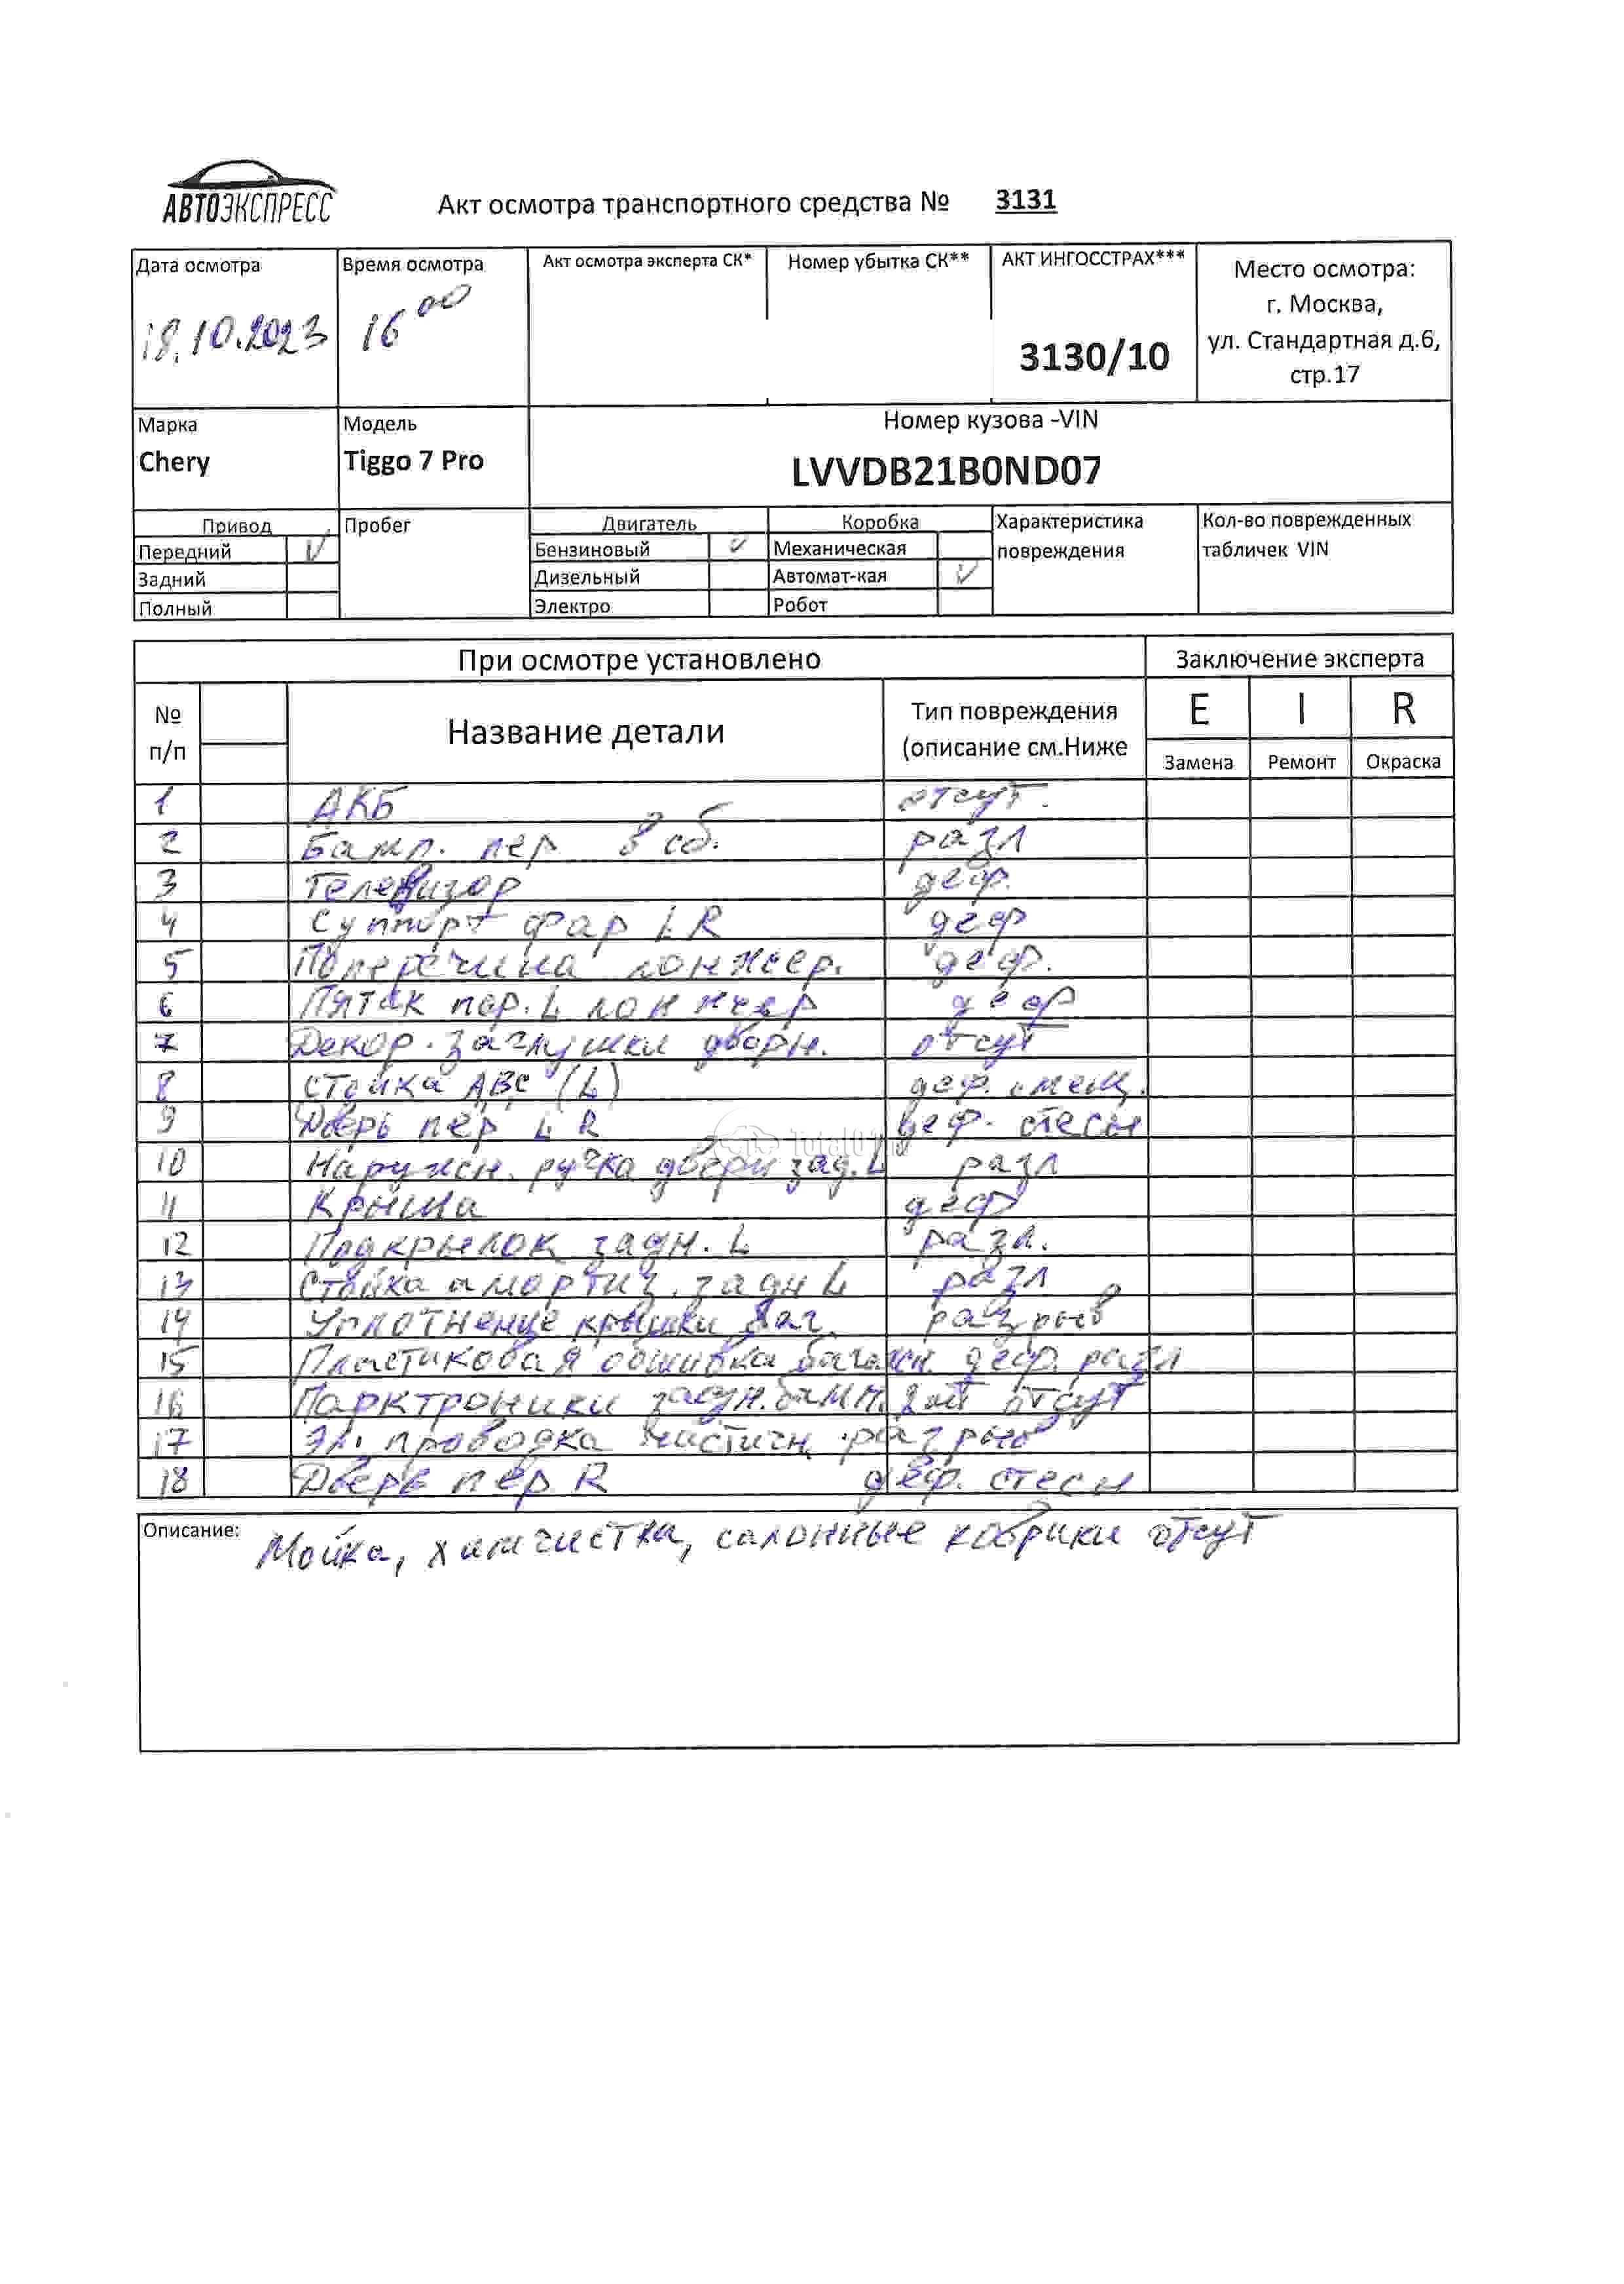 АВТОЭКСПРЕСС
Акт осмотра транспортного средства № 3131
Дата осмотра
18.10.2023
Время осмотра
16 00
Акт осмотра эксперта СК*
Номер убытка СК**
АКТ ИНГОССТРАХ***
3130/10
Место осмотра:
г. Москва,
ул. Стандартная д.6,
стр.17
Марка
Chery
Модель
Tiggo 7 Pro
Номер кузова -VIN
LVVDB21B0ND07
Привод
Передний ✓
Задний
Полный
Пробег
Двигатель
Бензиновый ✓
Дизельный
Электро
Коробка
Механическая
Автомат-кая ✓
Робот
Характеристика
повреждения
Кол-во поврежденных
табличек VIN
При осмотре установлено Заключение эксперта
№
п/п
Название детали
Тип повреждения
(описание см.Ниже
E I R
Замена Ремонт Окраска
1 АКБ отсут.
2 Бамп. пер в сб. разл
3 Телевизор деф.
4 Суппорт фар L R деф
5 Поперечина лонжер. деф.
6 Пятак пер. L лонжер деф
7 Декор. заглушки дворн. отсут
8 Стойка ABC (L) деф. смещ.
9 Дверь пер L R деф. стесы
10 Наружн. ручка двери зад. L разл
11 Крыша деф
12 Подкрылок задн. L разл.
13 Стойка амортиз. задн L разл
14 Уплотнение крышки баг. разрыв
15 Пластиковая обшивка багажн. деф. разл
16 Парктроники задн. бамп. 2шт отсут
17 Эл. проводка частичн. разрыв
18 Дверь пер R деф. стесы
Описание: Мойка, химчистка, салонные коврики отсут